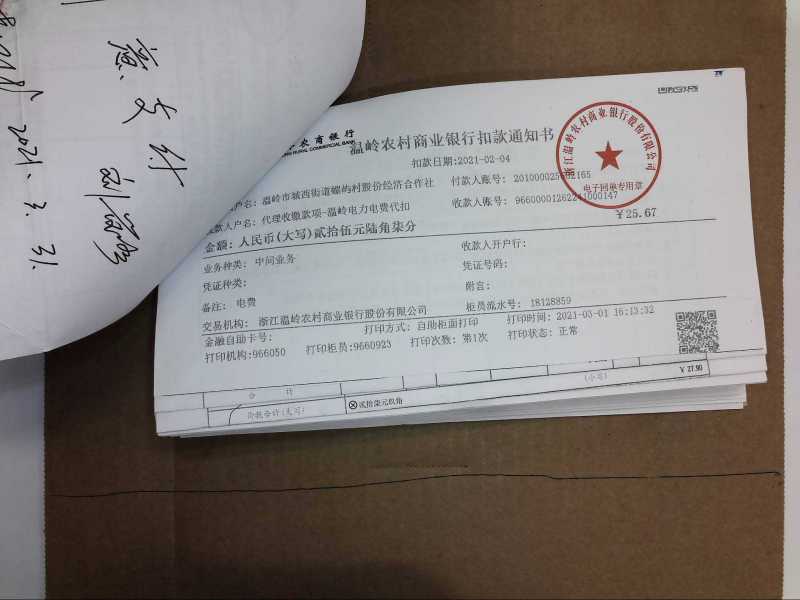 意支付
2021.3.31.
农商银行
RURAL COMMERCIAL BANK
温岭农村商业银行扣款通知书
扣款日期:2021-02-04
户名: 温岭市城西街道螺屿村股份经济合作社 付款人账号:
收款人户名: 代理收缴款项-温岭电力电费代扣 收款人账号: 96600001262241000147
金额: 人民币(大写)贰拾伍元陆角柒分 ¥25.67
业务种类: 中间业务 收款人开户行:
凭证种类: 凭证号码:
备注: 电费 附言:
交易机构: 浙江温岭农村商业银行股份有限公司 柜员流水号: 18128859
金融自助卡号: 打印方式: 自助柜面打印 打印时间: 2021-03-01 16:13:32
打印机构:966050 打印柜员:9660923 打印次数: 第1次 打印状态: 正常
浙江温岭农村商业银行股份有限公司
电子回单专用章
合 计
价税合计(大写) ⊗贰拾柒元玖角 (小写) ¥ 27.90